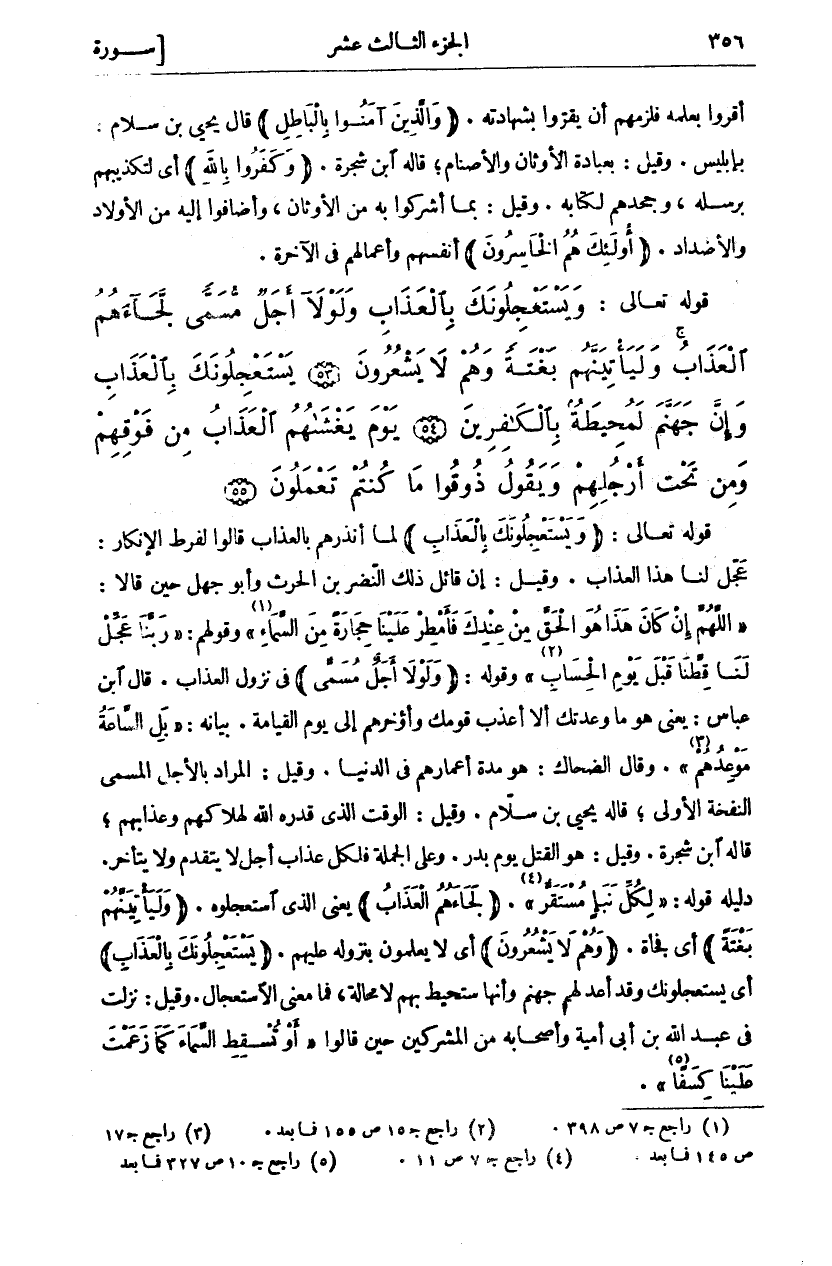 ٣٥٦ الجزء الثالث عشر [سورة
أقروا بعلمه فلزمهم أن يقرّوا بشهادته . ﴿ وَالَّذِينَ آمَنُوا بِالْبَاطِلِ ﴾ قال يحيى بن سلام :
بإبليس . وقيل : بعبادة الأوثان والأصنام؛ قاله ٱبن شجرة . ﴿ وَكَفَرُوا بِاللهِ ﴾ أى لتكذيبهم
برسله ، وجحدهم لكتابه . وقيل : بما أشركوا به من الأوثان ، وأضافوا إليه من الأولاد
والأضداد . ﴿ أُولَئِكَ هُمُ الْخَاسِرُونَ ﴾ أنفسهم وأعمالهم فى الآخرة .
قوله تعالى : وَيَسْتَعْجِلُونَكَ بِٱلْعَذَابِ وَلَوْلَآ أَجَلٌ مُّسَمًّى لَّجَآءَهُمُ
ٱلْعَذَابُ ۚ وَلَيَأْتِيَنَّهُم بَغْتَةً وَهُمْ لَا يَشْعُرُونَ ﴿٥٣﴾ يَسْتَعْجِلُونَكَ بِٱلْعَذَابِ
وَإِنَّ جَهَنَّمَ لَمُحِيطَةٌۢ بِٱلْكَٰفِرِينَ ﴿٥٤﴾ يَوْمَ يَغْشَىٰهُمُ ٱلْعَذَابُ مِن فَوْقِهِمْ
وَمِن تَحْتِ أَرْجُلِهِمْ وَيَقُولُ ذُوقُوا مَا كُنتُمْ تَعْمَلُونَ ﴿٥٥﴾
قوله تعالى : ﴿ وَيَسْتَعْجِلُونَكَ بِالْعَذَابِ ﴾ لما أنذرهم بالعذاب قالوا لفرط الإنكار :
عَجِّل لنا هذا العذاب . وقيل : إن قائل ذلك النّضر بن الحرث وأبو جهل حين قالا :
« اللَّهُمَّ إِنْ كَانَ هَذَا هُوَ الْحَقَّ مِنْ عِنْدِكَ فَأَمْطِرْ عَلَيْنَا حِجَارَةً مِنَ السَّمَاءِ (١) » وقولهم : « رَبَّنَا عَجِّلْ
لَنَا قِطَّنَا قَبْلَ يَوْمِ الْحِسَابِ (٢) » وقوله : ﴿ وَلَوْلَا أَجَلٌ مُسَمًّى ﴾ فى نزول العذاب . قال ٱبن
عباس : يعنى هو ما وعدتك ألا أعذب قومك وأؤخرهم إلى يوم القيامة . بيانه : « بَلِ السَّاعَةُ
مَوْعِدُهُمْ (٣) » . وقال الضحاك : هو مدة أعمارهم فى الدنيا . وقيل : المراد بالأجل المسمى
النفخة الأولى ؛ قاله يحيى بن سلّام . وقيل : الوقت الذى قدره الله لهلاكهم وعذابهم ؛
قاله ٱبن شجرة . وقيل : هو القتل يوم بدر . وعلى الجملة فلكل عذاب أجل لا يتقدم ولا يتأخر.
دليله قوله : « لِكُلِّ نَبَإٍ مُسْتَقَرٌّ (٤) » . ﴿ لَجَاءَهُمُ الْعَذَابُ ﴾ يعنى الذى ٱستعجلوه . ﴿ وَلَيَأْتِيَنَّهُمْ
بَغْتَةً ﴾ أى فجأة . ﴿ وَهُمْ لَا يَشْعُرُونَ ﴾ أى لا يعلمون بنزوله عليهم . ﴿ يَسْتَعْجِلُونَكَ بِالْعَذَابِ ﴾
أى يستعجلونك وقد أعد لهم جهنم وأنها ستحيط بهم لا محالة، فما معنى الاستعجال. وقيل : نزلت
فى عبد الله بن أبى أمية وأصحابه من المشركين حين قالوا « أَوْ تُسْقِطَ السَّمَاءَ كَمَا زَعَمْتَ
عَلَيْنَا كِسَفًا (٥) » .
(١) راجع جـ ٧ ص ٣٩٨ . (٢) راجع جـ ١٥ ص ١٥٥ فما بعد . (٣) راجع جـ ١٧
ص ١٤٥ فما بعد . (٤) راجع جـ ٧ ص ١١ . (٥) راجع جـ ١٠ ص ٣٢٧ فما بعد